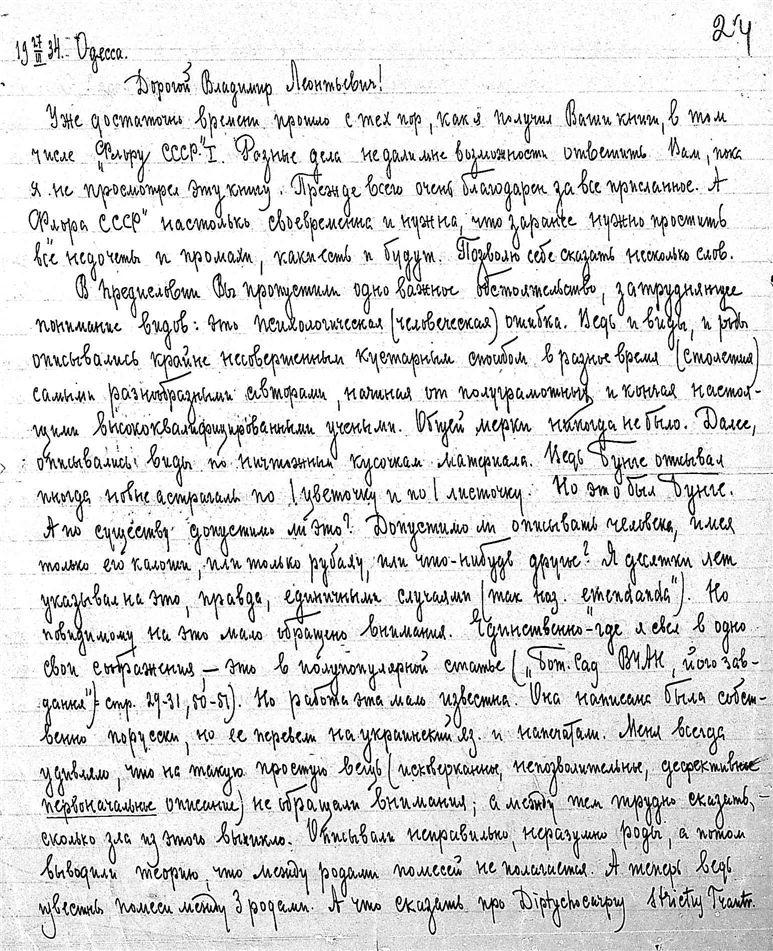 24
19 27/III 34. Одесса.
Дорогой Владимир Леонтьевич!
Уже достаточно времени прошло с тех пор, как я получил Ваши книги, в том
числе "Флору СССР" I. Разные дела не дали мне возможности ответить Вам, пока
я не просмотрел эту книгу. Прежде всего очень благодарен за все присланное. А
"Флора СССР" настолько своевременна и нужна, что заранее нужно простить
всё недочеты и промахи, какие есть и будут. Позволю себе сказать несколько слов.
В предисловии Вы пропустили одно важное обстоятельство, затрудняющее
понимание видов: это психологическая (человеческая) ошибка. Ведь и виды, и роды
описывались крайне несовершенным кустарным способом в разное время (столетия)
самыми разнообразными авторами, начиная от полуграмотных и кончая настоя-
щими высококвалифицированными учеными. Общей мерки никогда не было. Далее,
описывались виды по ничтожным кусочкам материала. Ведь Бунге описывал
иногда новые астрагалы по 1 цветочку и по 1 листочку. Но это был Бунге.
А по существу допустимо ли это? Допустимо ли описывать человека, имея
только его калоши, или только рубаху, или что-нибудь другое? Я десятки лет
указывал на это, правда, единичными случаями (так наз. "emendanda"). Но
повидимому на это мало обращено внимания. Единственно где я свел в одно
свои соображения, – это в полупопулярной статье ("Бот. Сад ВУАН, його зав-
дання" – стр. 29-31, 50-51). Но работа эта мало известна. Она написана была собст-
венно порусски, но ее перевели на украинский яз. и напечатали. Меня всегда
удивляло, что на такую простую вещь (исковерканные, непозволительные, дефективные
первоначальные описания) не обращали внимания; а между тем трудно сказать,
сколько зла из этого выникло. Описывали неправильно, неразумно роды, а потом
выводили теорию, что между родами помесей не полагается. А теперь ведь
известны помеси между 3 родами. А что сказать про Diptychocarpus strictus Trautv.